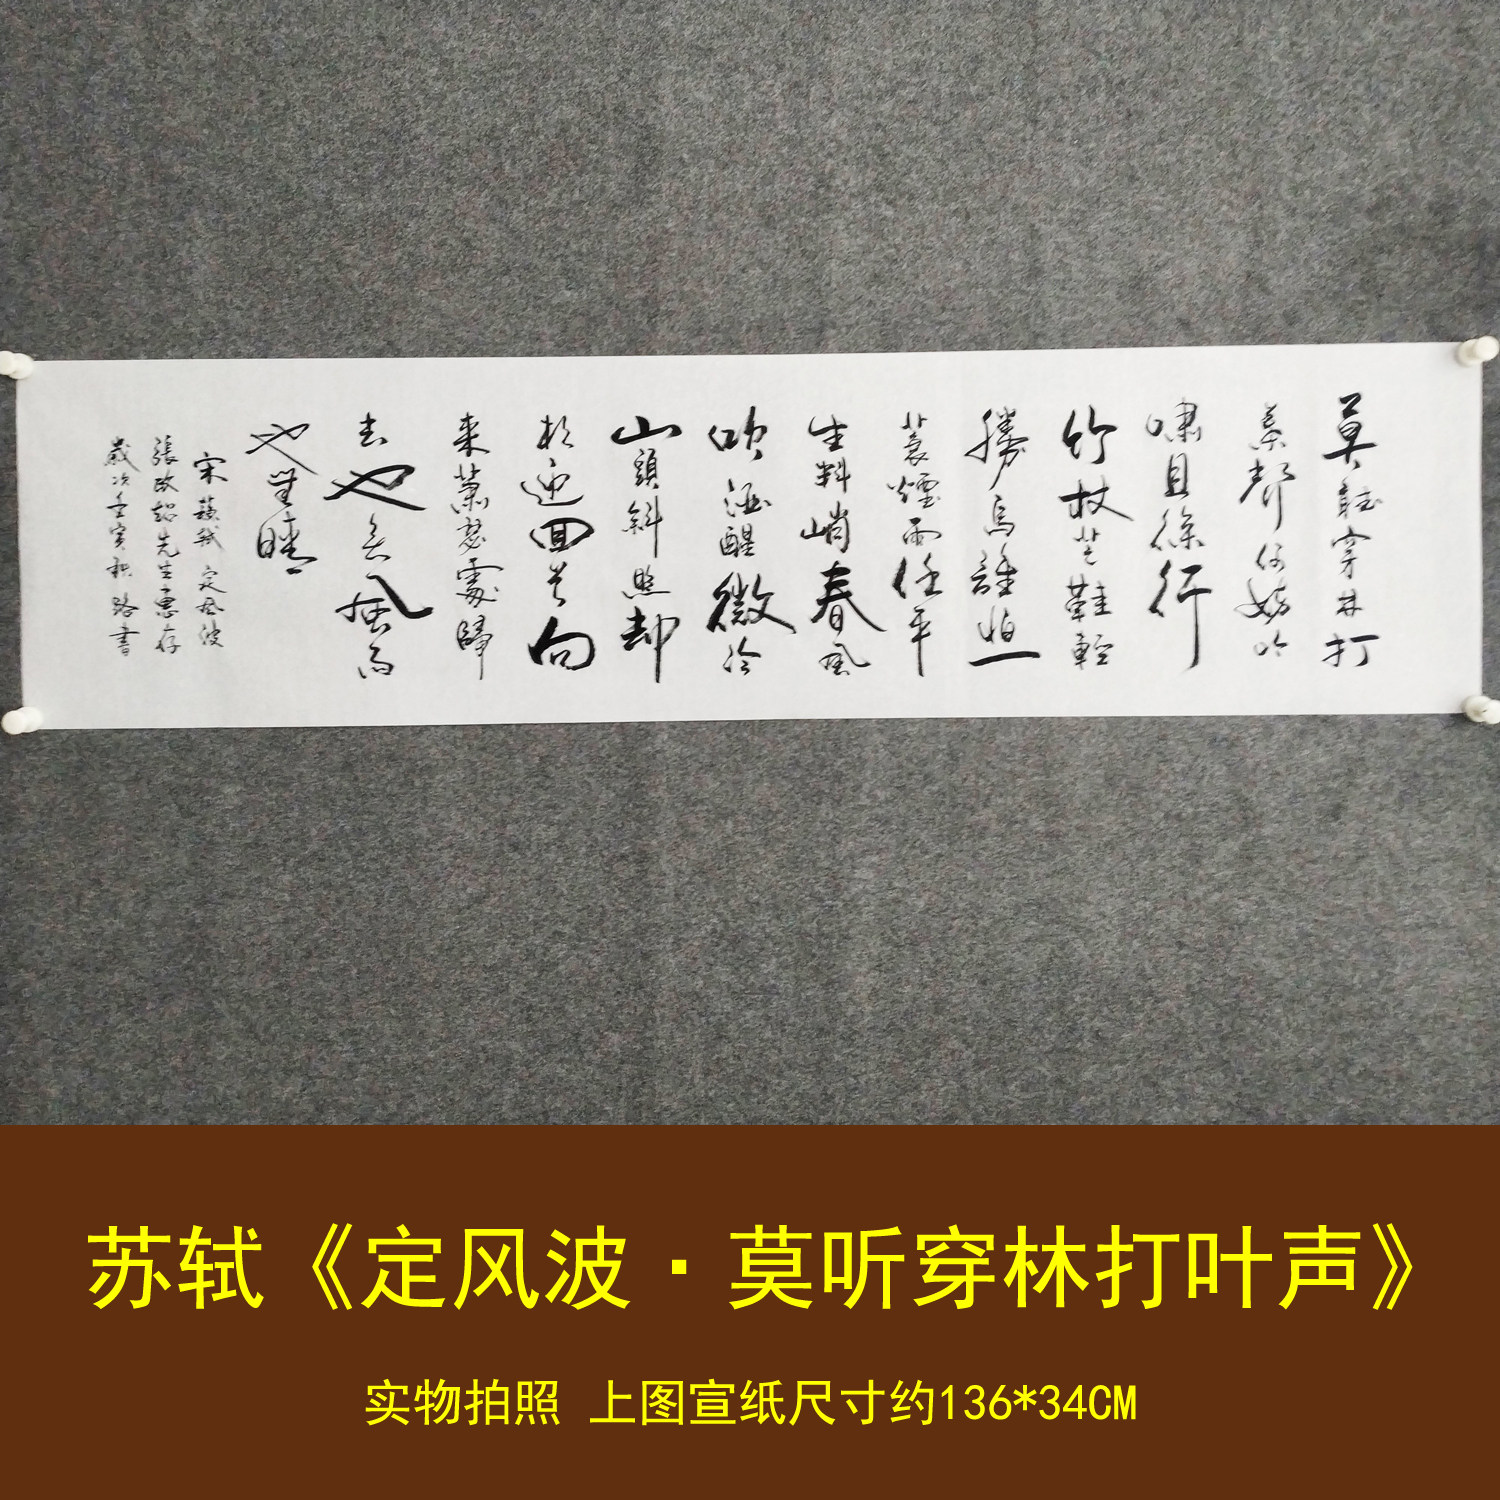 莫聽穿林打
葉聲何妨吟
嘯且徐行
竹杖芒鞋輕
勝馬誰怕一
蓑煙雨任平
生料峭春風
吹酒醒微冷
山頭斜照却
相迎回首向
来蕭瑟處歸
去也無風雨
也無晴
宋蘇軾定風波
張政超先生惠存
歲次壬寅秋路書
苏轼《定风波·莫听穿林打叶声》
实物拍照 上图宣纸尺寸约136*34CM